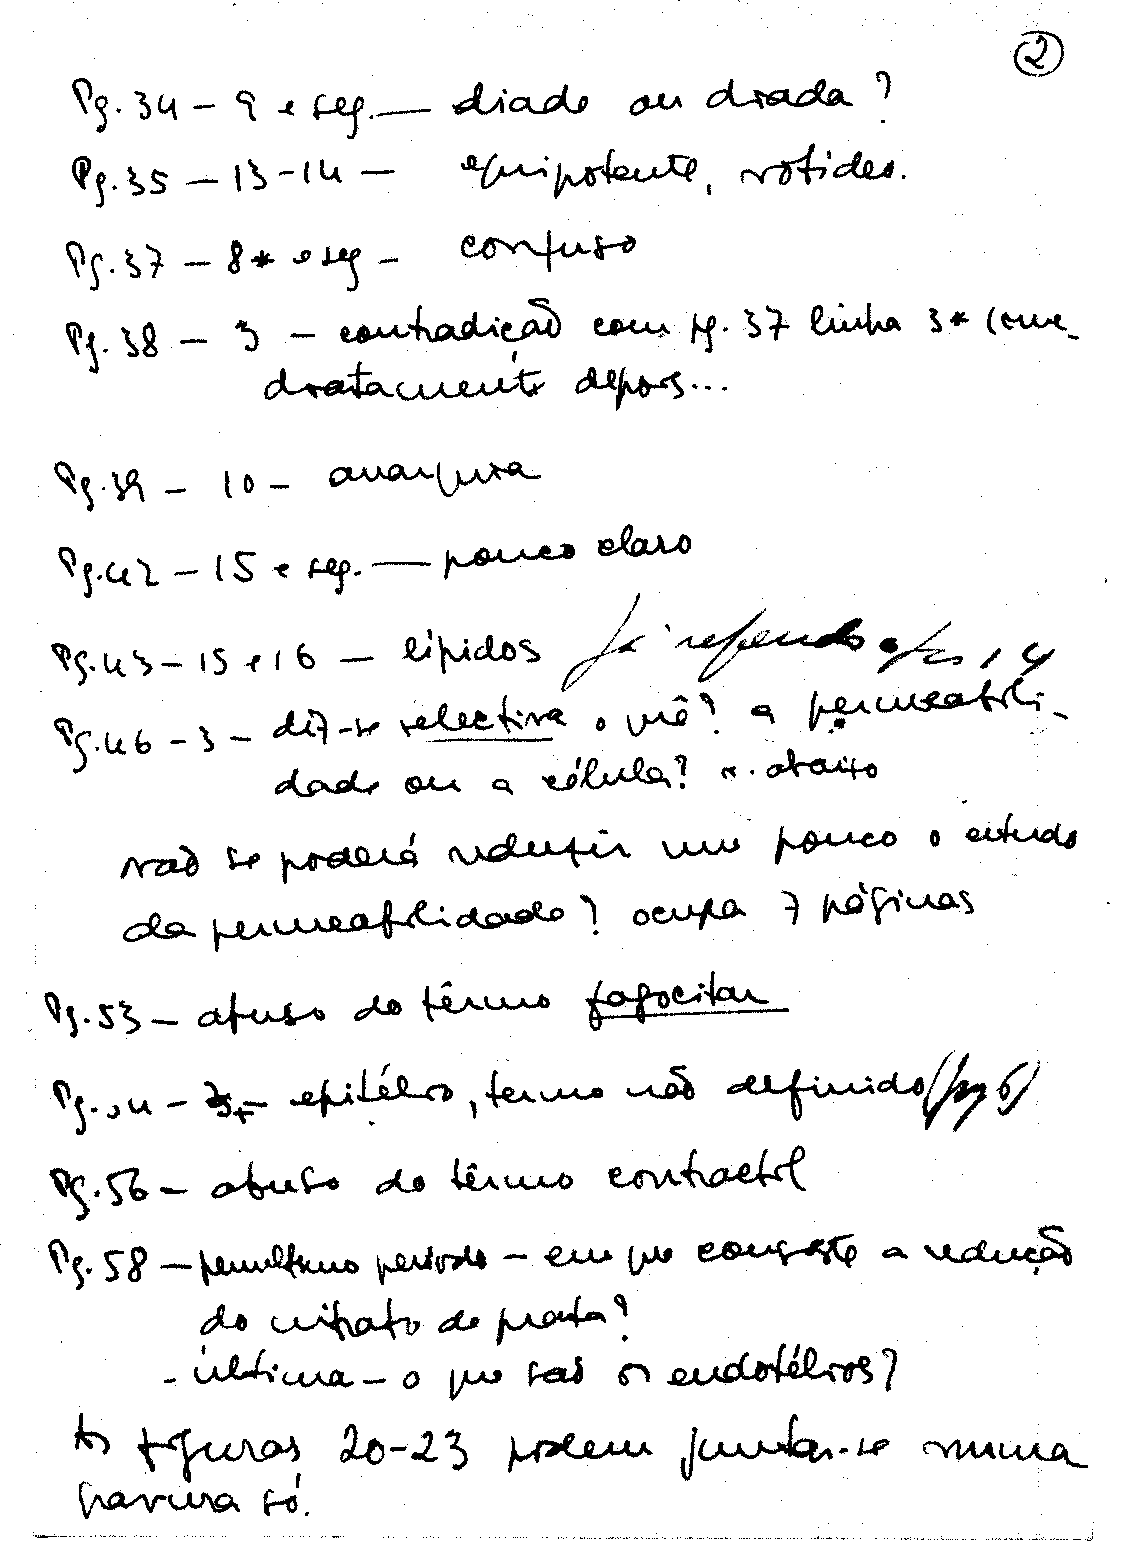 2
Pg. 34 - 9 e seg. — diade ou diada ?
Pg. 35 - 13-14 - equipotente, rotides.
Pg. 37 - 8* e seg - confuso
Pg. 38 - 3 - contradição com pg. 37 linha 3* (ime-
diatamente depois...
Pg. 39 - 10 - anarquia
Pg. 42 - 15 e seg. — pouco claro
Pg. 43 - 15 e 16 - lípidos Já referido
Pg. 46 - 3 - diz-se selectiva o quê? a permeabili-
dade ou a célula? v. abaixo
não se poderá reduzir um pouco o estudo
da permeabilidade? ocupa 7 páginas
Pg. 53 - abuso do têrmo fagocitar
Pg. - epitélio, termo não definido (pg 6)
Pg. 56 - abuso do têrmo contractil
Pg. 58 - penultimo período - em que consiste a redução
do nitrato de prata?
- última - o que são os endotélios?
As figuras 20-23 podem juntar-se numa
gravura só.